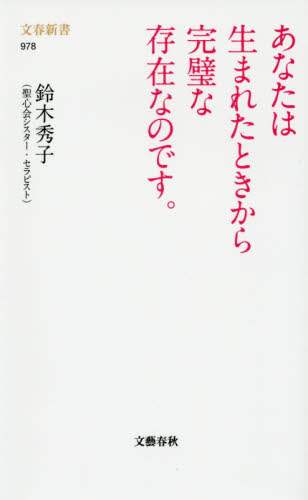 文春新書
978
あなたは
生まれたときから
完璧な
存在なのです。
鈴木秀子
(聖心会シスター・セラピスト)
文藝春秋